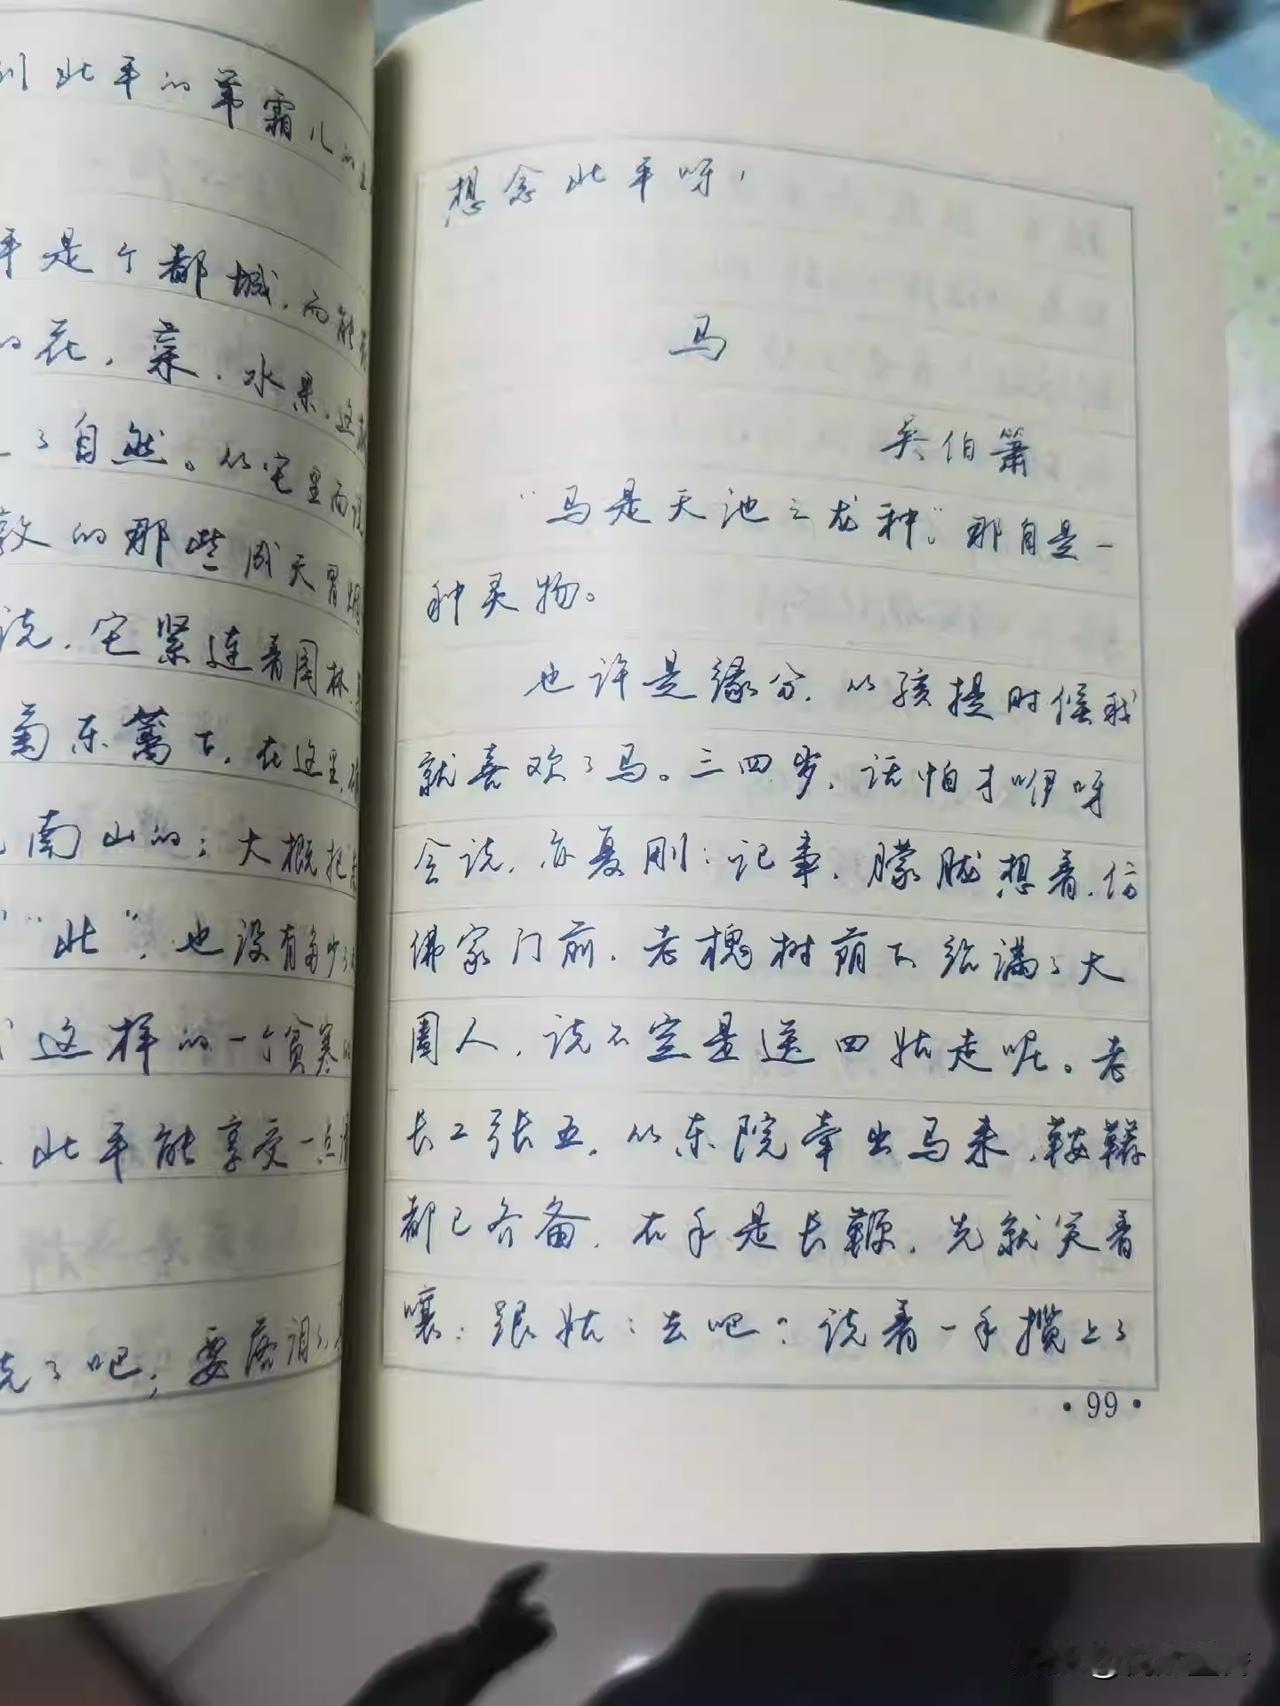 到北平的带霜儿的玉
平是个都城，而能有
的花，菜，水果，这就
了自然。从它里面说
敦的那些成天冒烟
说，它紧连着园林、
菊东篱下，在这里，
南山的；大概把
“北”，也没有多少
这样的一个贫寒的
北平能享受一点
完了吧；要落泪了，
想念北平呀！
马
吴伯箫
“马是天池之龙种。”那自是一
种灵物。
也许是缘分，从孩提时候我
就喜欢了马。三四岁，话怕才咿呀
会说，亦复刚刚记事，朦胧想着，仿
佛家门前，老槐树荫下站满了大
圈人，说不定是送四姑走呢。老
长工张五，从东院牵出马来，鞍鞯
都已齐备，右手是长鞭，先就笑着
嚷：跟姑姑去吧？说着一手揽上了
·99·